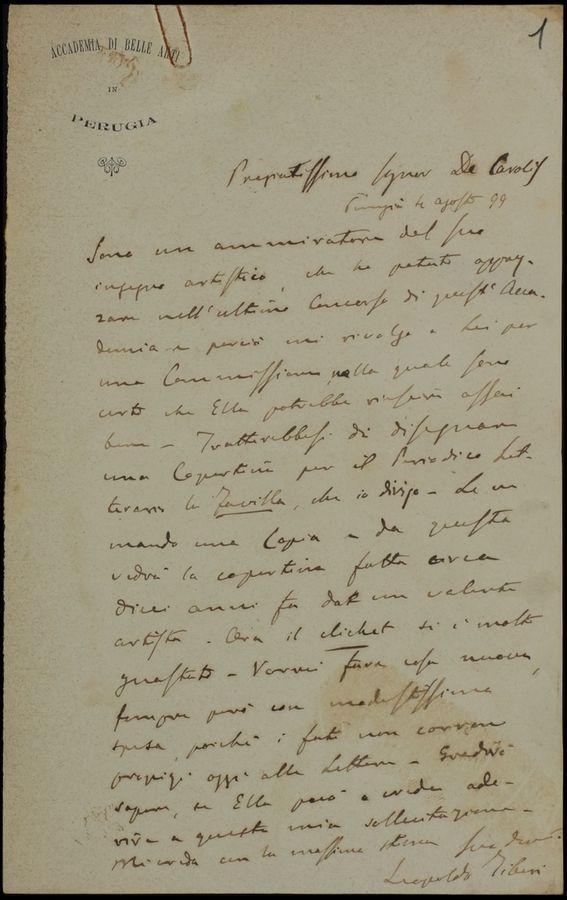 1
ACCADEMIA DI BELLE ARTI
IN
PERUGIA
Pregiatissimo Signor De Carolis
Perugia 4 agosto 99
Sono un ammiratore del suo
ingegno artistico, che ho potuto apprez-
zare nell'ultimo Concorso di quest'Acca-
demia e perciò mi rivolgo a Lei per
una Commissione nella quale sono
certo che Ella potrebbe riuscire assai
bene – Tratterebbesi di disegnare
una Copertina per il Periodico Let-
terario la Favilla, che io dirigo – Le ne
mando una Copia e da questa
vedrà la copertina fatta circa
dieci anni fa dal un valente
artista – Ora il clichet si è molto
guastato – Vorrei fare cosa nuova,
sempre però con modestissima
spesa, poichè i fati non corrono
propizi oggi alle Lettere – Gradirò
sapere, se Ella può e crede ade-
rire a questa mia sollecitazione –
Mi creda con la massima stima suo devmo
Leopoldo Tiberi